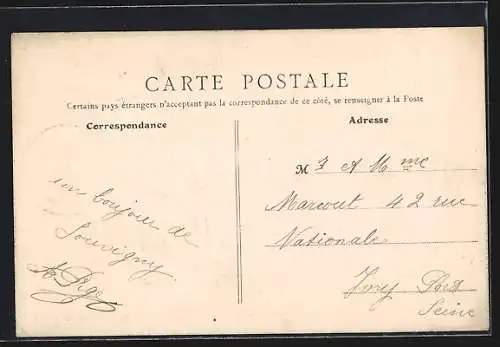 CARTE POSTALE
Certains pays étrangers n'acceptant pas la correspondance de ce côté, se renseigner à la Poste
Correspondance
Adresse
un bonjour de
Souvigny
M r et Mme
Marcout 42 rue
Nationale
Ivry
Seine